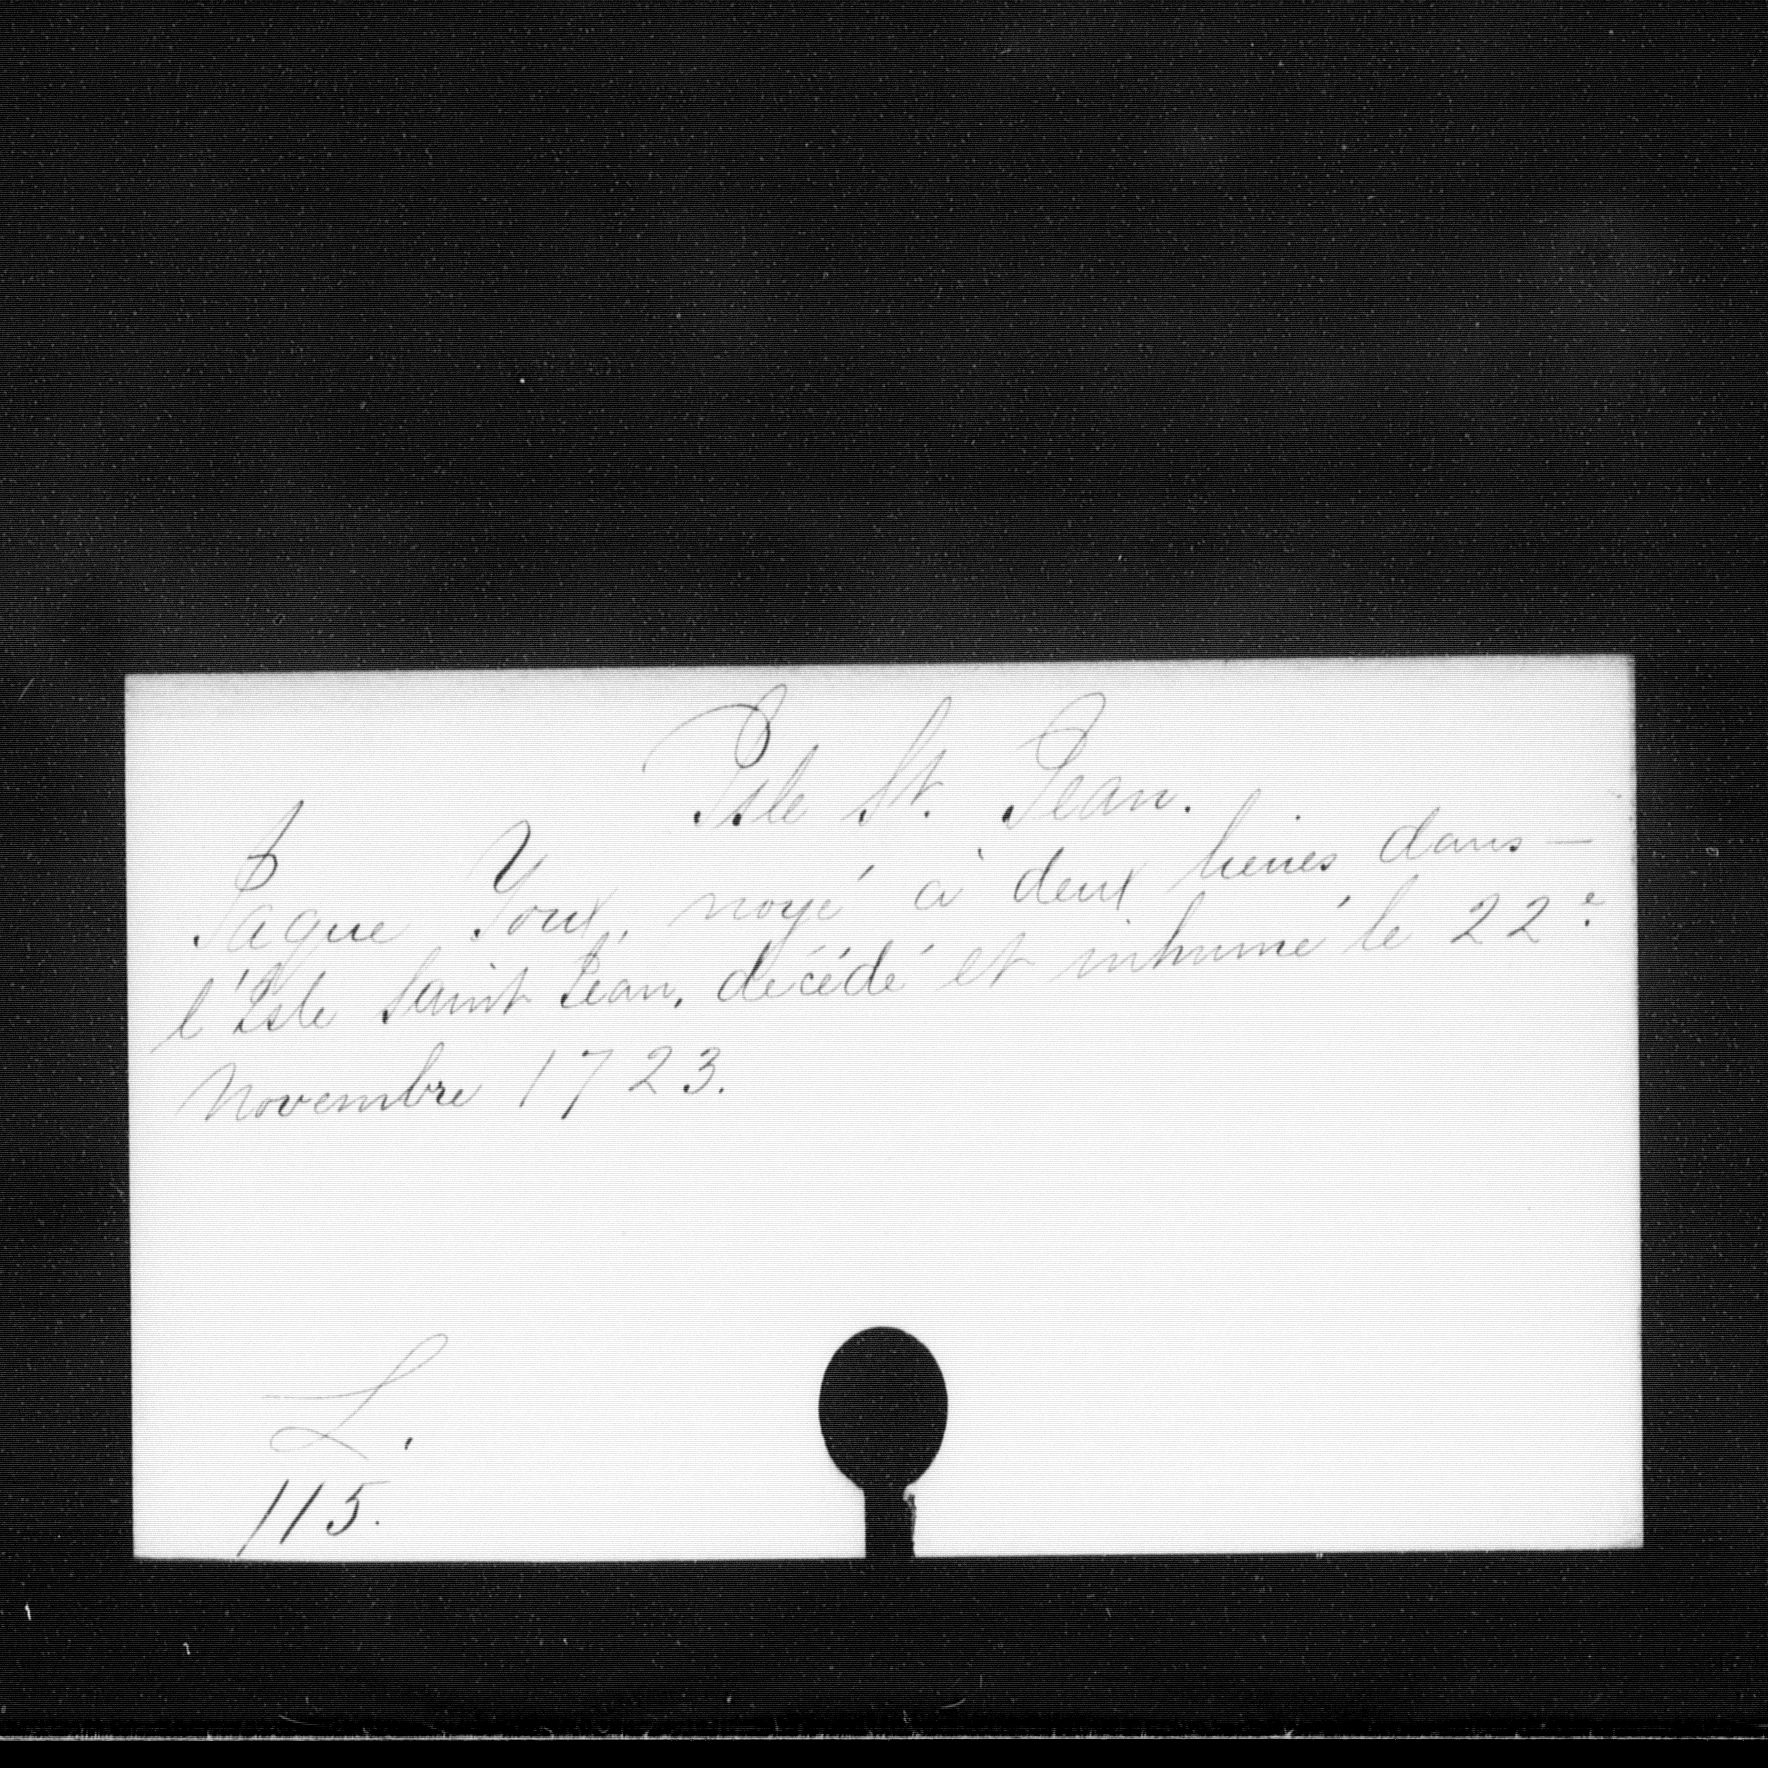 Isle St. Jean.
Jaque Youx, noyé à deux lieues dans —
l'Isle Saint Jean, décédé et inhumé le 22e
Novembre 1723.
L.
115.